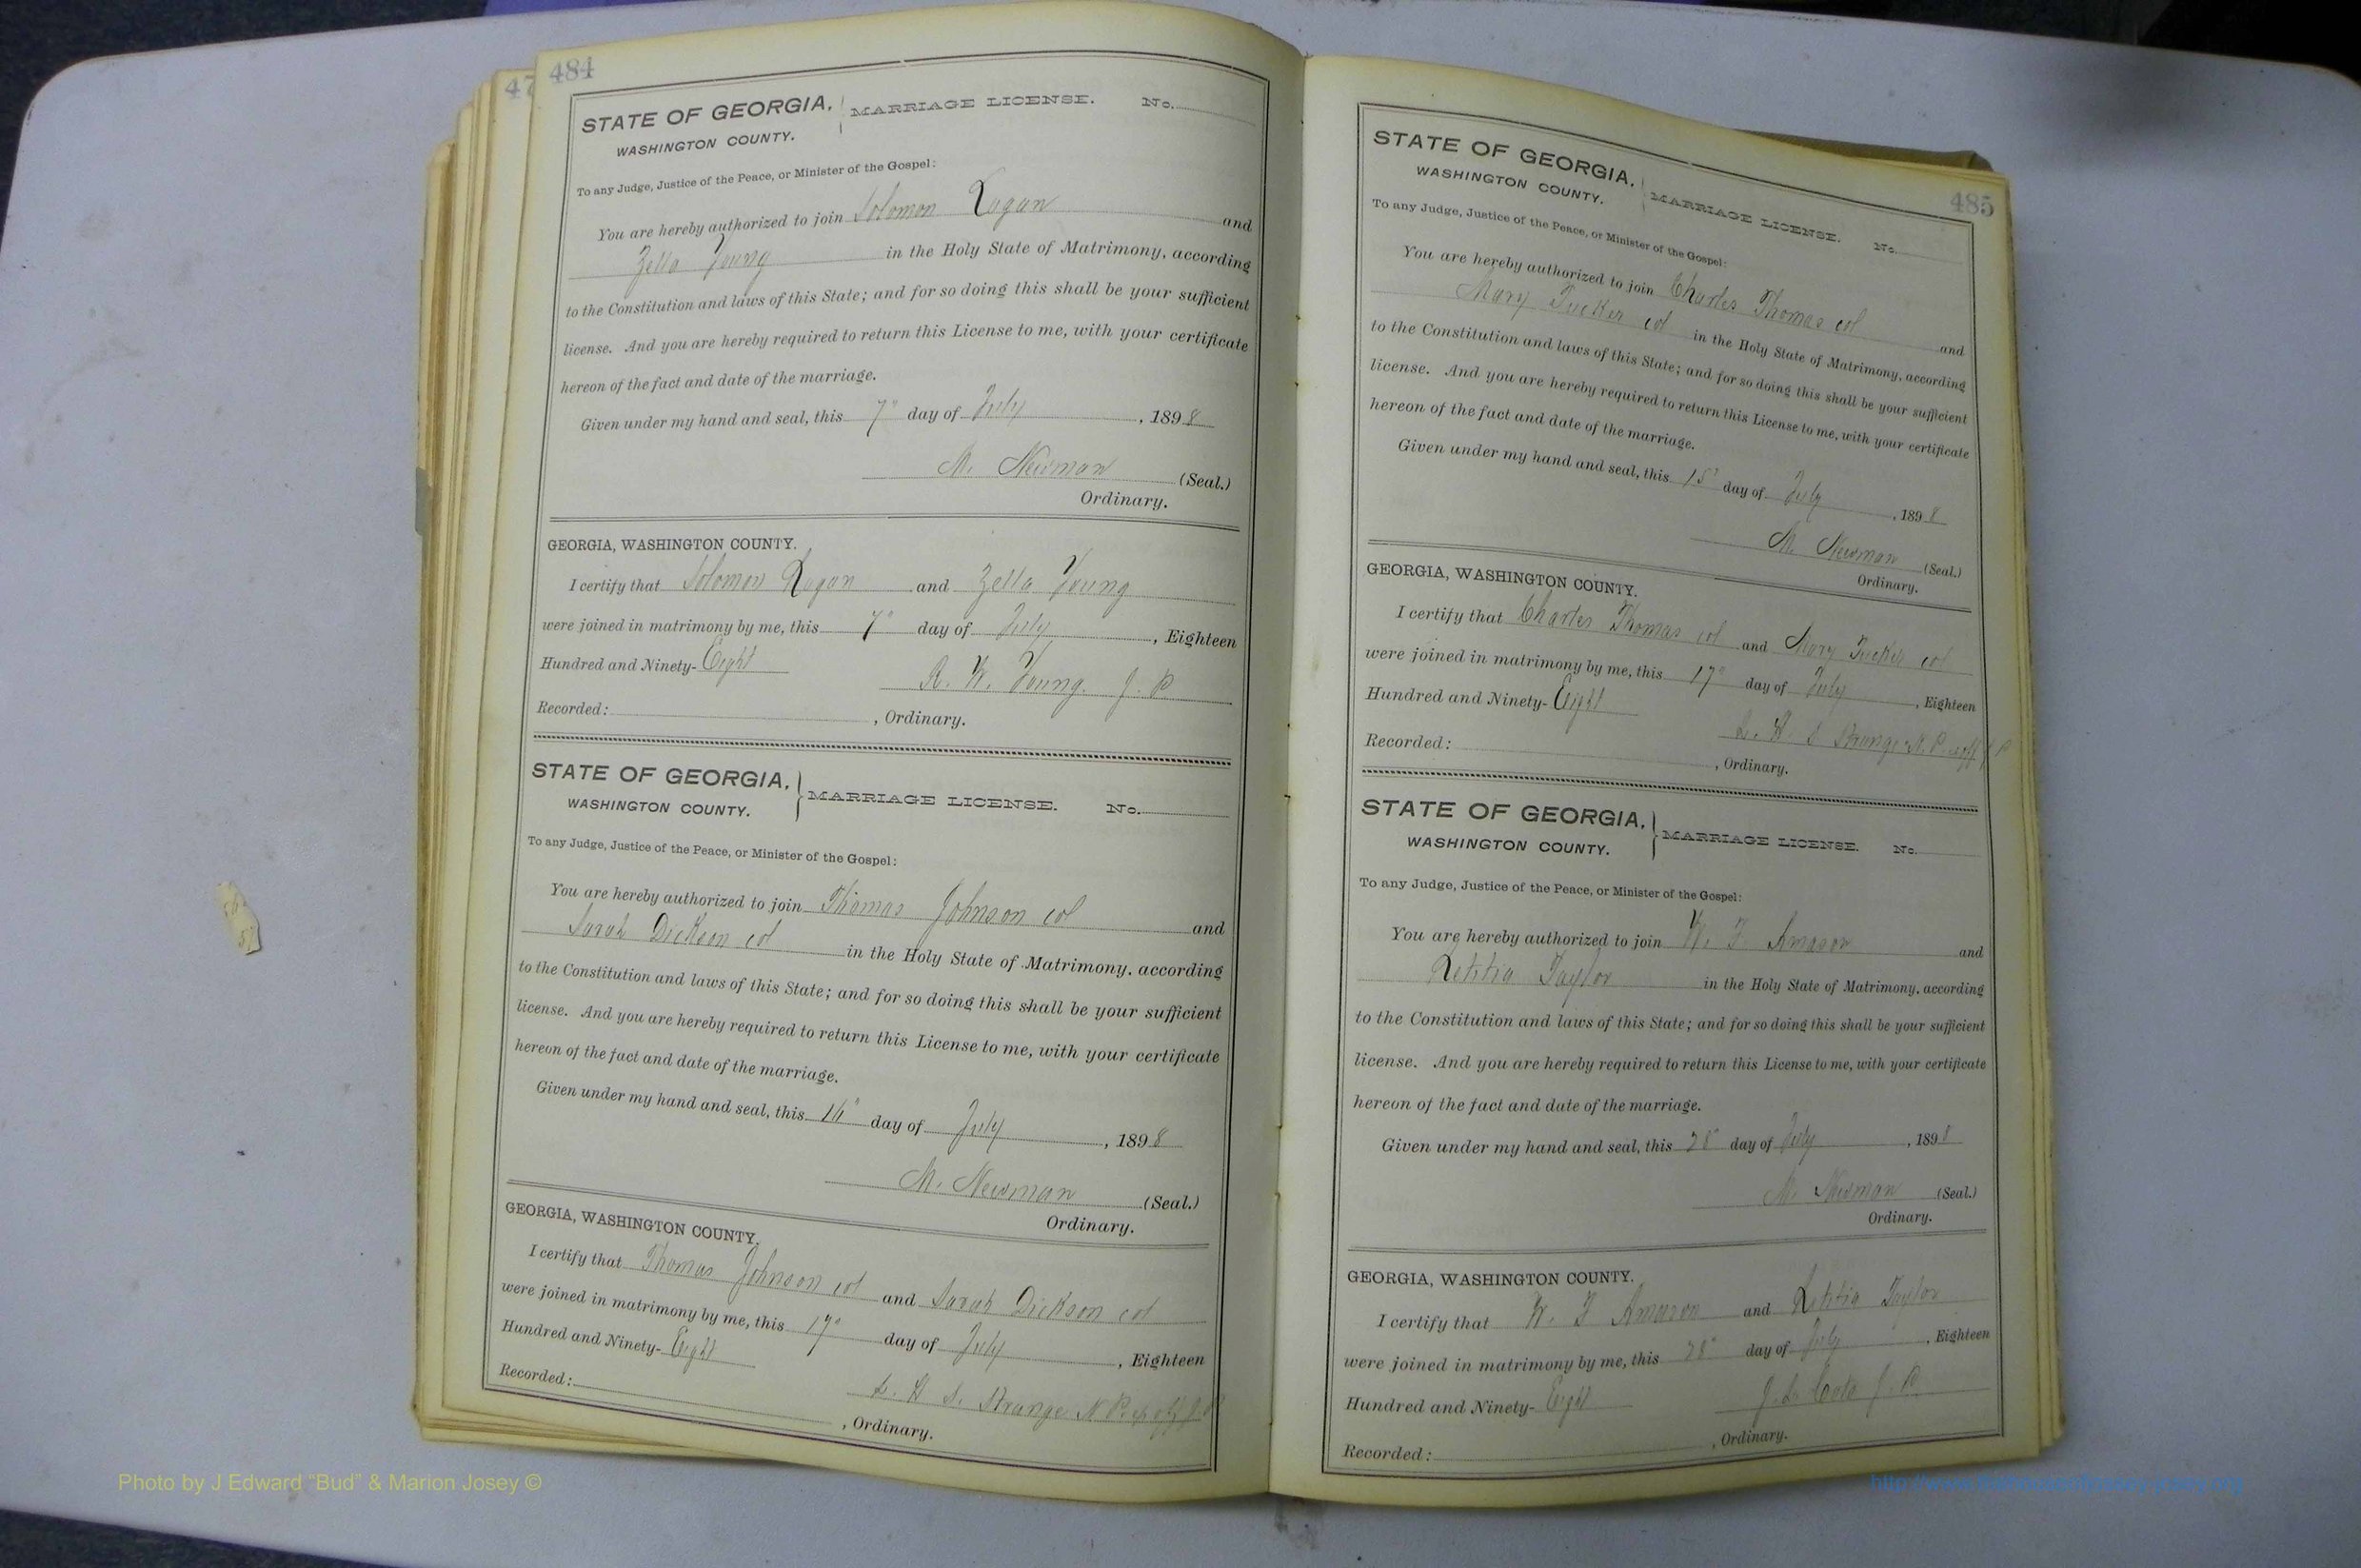 484
STATE OF GEORGIA, MARRIAGE LICENSE. No.
WASHINGTON COUNTY.
To any Judge, Justice of the Peace, or Minister of the Gospel:
You are hereby authorized to join Solomon Logan and
Zella Young in the Holy State of Matrimony, according
to the Constitution and laws of this State; and for so doing this shall be your sufficient
license. And you are hereby required to return this License to me, with your certificate
hereon of the fact and date of the marriage.
Given under my hand and seal, this 7" day of July, 1898
M. Newman (Seal.)
Ordinary.
GEORGIA, WASHINGTON COUNTY.
I certify that Solomon Logan and Zella Young
were joined in matrimony by me, this 7" day of July, Eighteen
Hundred and Ninety-Eight
R. W. Young. J. P
Recorded: , Ordinary.
STATE OF GEORGIA, MARRIAGE LICENSE. No.
WASHINGTON COUNTY.
To any Judge, Justice of the Peace, or Minister of the Gospel:
You are hereby authorized to join Thomas Johnson col and
Sarah Dickson col in the Holy State of Matrimony, according
to the Constitution and laws of this State; and for so doing this shall be your sufficient
license. And you are hereby required to return this License to me, with your certificate
hereon of the fact and date of the marriage.
Given under my hand and seal, this 16" day of July, 1898
M. Newman (Seal.)
Ordinary.
GEORGIA, WASHINGTON COUNTY.
I certify that Thomas Johnson col and Sarah Dickson col
were joined in matrimony by me, this 17" day of July, Eighteen
Hundred and Ninety-Eight
L. H S. Strange N P. ex off J. P
Recorded: , Ordinary.
485
STATE OF GEORGIA, MARRIAGE LICENSE. No.
WASHINGTON COUNTY.
To any Judge, Justice of the Peace, or Minister of the Gospel:
You are hereby authorized to join Charles Thomas col and
Mary Tucker col in the Holy State of Matrimony, according
to the Constitution and laws of this State; and for so doing this shall be your sufficient
license. And you are hereby required to return this License to me, with your certificate
hereon of the fact and date of the marriage.
Given under my hand and seal, this 15" day of July, 1898
M. Newman (Seal.)
Ordinary.
GEORGIA, WASHINGTON COUNTY.
I certify that Charles Thomas col and Mary Tucker col
were joined in matrimony by me, this 17" day of July, Eighteen
Hundred and Ninety-Eight
L. H. S Strange N. P. ex off J P
Recorded: , Ordinary.
STATE OF GEORGIA, MARRIAGE LICENSE. No.
WASHINGTON COUNTY.
To any Judge, Justice of the Peace, or Minister of the Gospel:
You are hereby authorized to join W. F. Amason and
Letitia Taylor in the Holy State of Matrimony, according
to the Constitution and laws of this State; and for so doing this shall be your sufficient
license. And you are hereby required to return this License to me, with your certificate
hereon of the fact and date of the marriage.
Given under my hand and seal, this 28" day of July, 1898
M. Newman (Seal.)
Ordinary.
GEORGIA, WASHINGTON COUNTY.
I certify that W. F Amason and Letitia Taylor
were joined in matrimony by me, this 28" day of July, Eighteen
Hundred and Ninety-Eight
J. L. J. P.
Recorded: , Ordinary.
Photo by J Edward “Bud” & Marion Josey ©